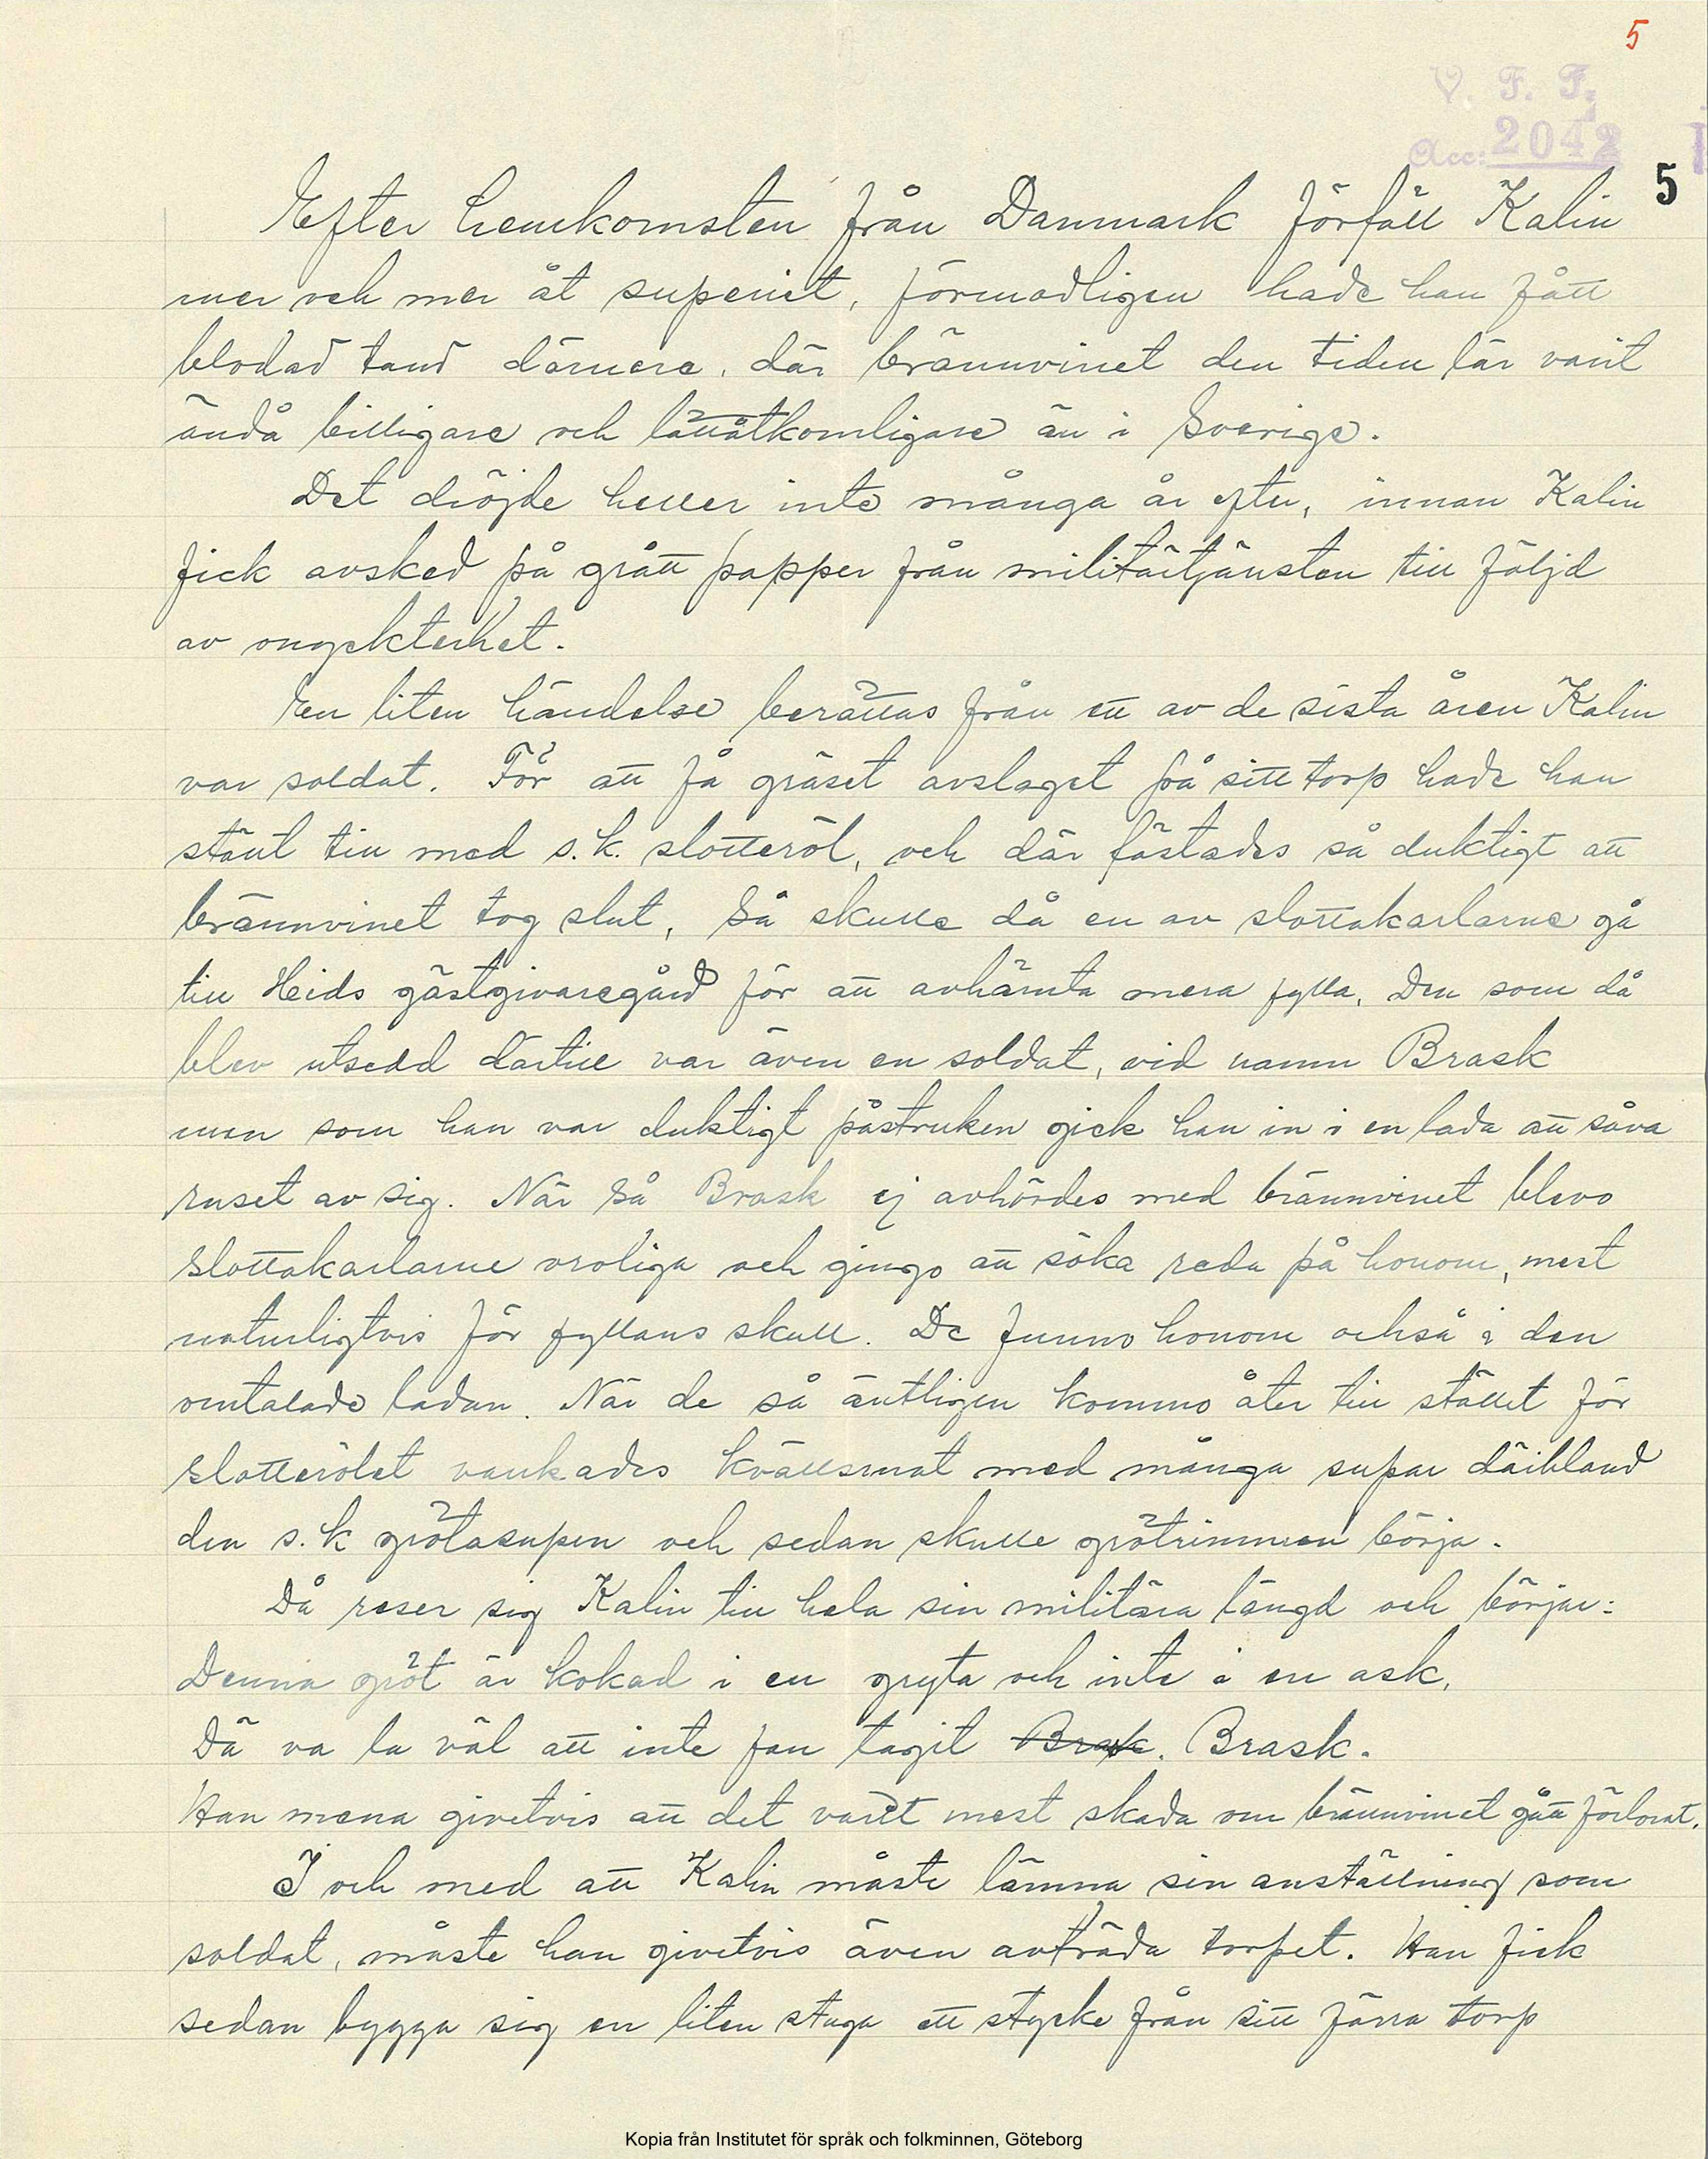 5
V. F. F.
Acc: 2042
5
Efter hemkomsten från Danmark förföll Kalin
mer och mer åt superiet, förmodligen hade han fått
blodad tand därnere, där brännvinet den tiden lär varit
ändå billigare och lättåtkomligare än i Sverige.
Det dröjde heller inte många år efter, innan Kalin
fick avsked på grått papper från militärtjänsten till följd
av onyckterhet.
En liten händelse berättas från ett av de sista åren Kalin
var soldat. För att få gräset avslaget på sitt torp hade han
ställt till med s.k. slotteröl, och där fästades så duktigt att
brännvinet tog slut, Så skulle då en av slottakarlarne gå
till Heids gästgivaregård för att avhämta mera fylla. Den som då
blev utsedd därtill var även en soldat, vid namn Brask
men som han var duktigt påstruken gick han in i en lada att såva
ruset av sig. När så Brask ej avhördes med brännvinet blevo
slottakarlarne oroliga och gingo att söka reda på honom, mest
naturligtvis för fyllans skull. De funno honom också i den
omtalade ladan. När de så äntligen kommo åter till stället för
slotterölet vankades kvällsmat med många supar däribland
den s.k grötasupen och sedan skulle grötrimmen börja.
Då reser sig Kalin till hela sin militära längd och börjar:
Denna gröt är kokad i en gryta och inte i en ask,
Dä va la väl att inte fan tagit Brask. Brask.
Han mena givetvis att det varit mest skada om brännvinet gått förlorat.
I och med att Kalin måste lämna sin anställning som
soldat, måste han givetvis även avträda torpet. Han fick
sedan bygga sig en liten stuga ett stycke från sitt förra torp
Kopia från Institutet för språk och folkminnen, Göteborg